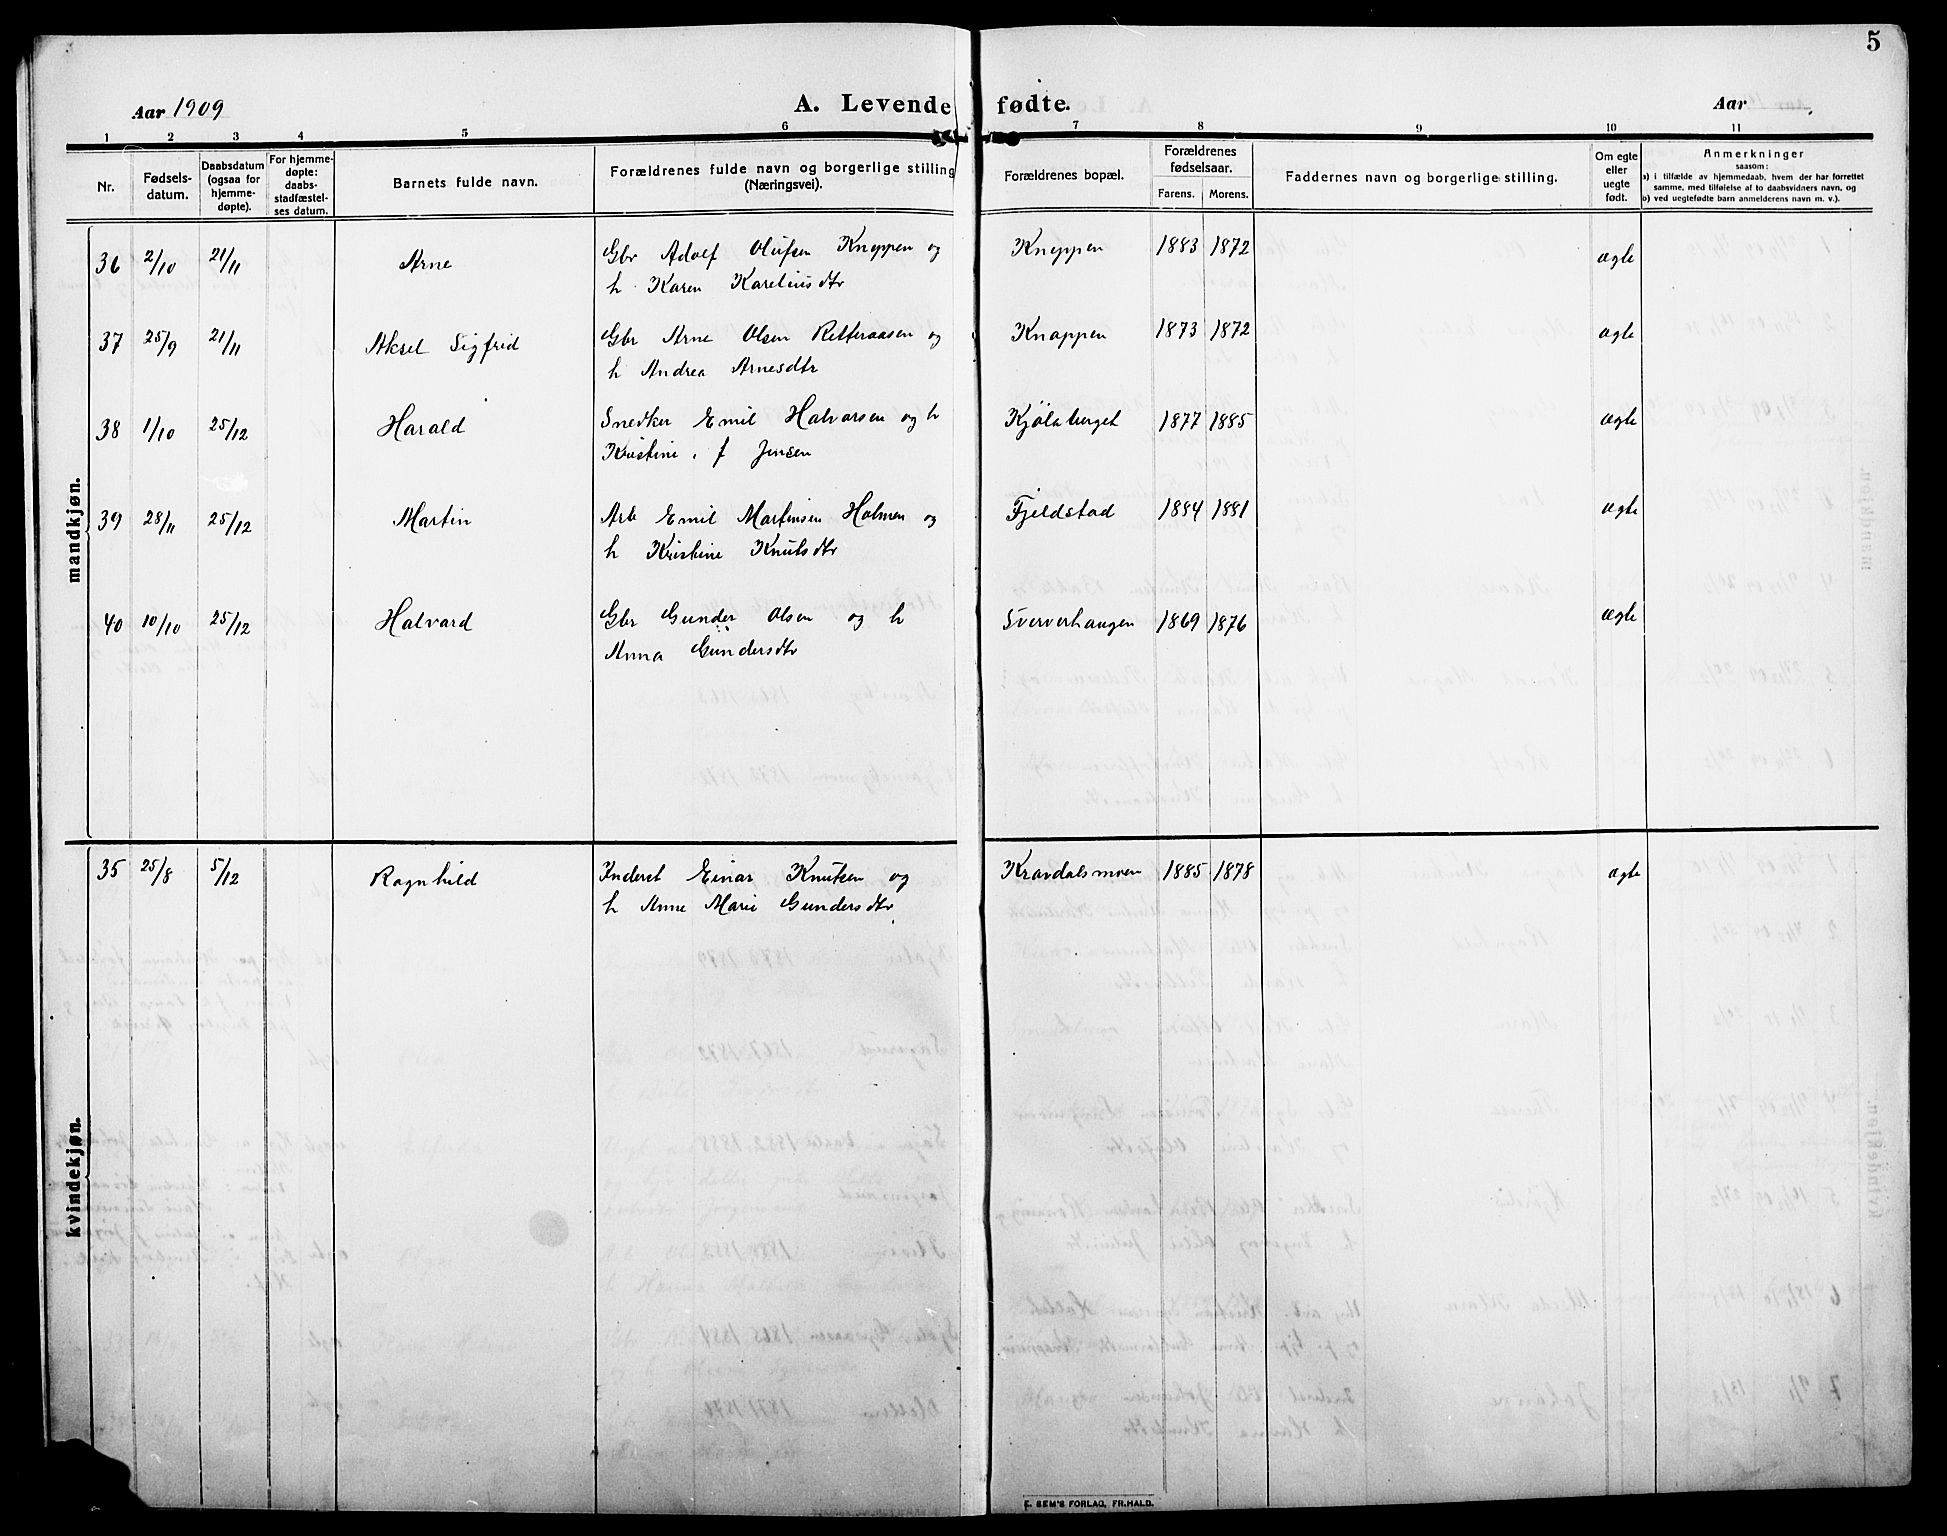 5
Aar 1909
A. Levende fødte.
Aar
1 2 3 4 5 6 7 8 9 10 11
Nr.
Fødsels-
datum.
Daabsdatum
(ogsaa for
hjemme-
døpte).
For hjemme-
døpte:
daabs-
stadfæstel-
ses datum.
Barnets fulde navn.
Forældrenes fulde navn og borgerlige stilling
(Næringsvei).
Forældrenes bopæl.
Forældrenes
fødselsaar.
Farens. Morens.
Faddernes navn og borgerlige stilling.
Om egte
eller
uegte
født.
Anmerkninger
saasom:
a) i tilfælde av hjemmedaab, hvem der har forrettet
samme, med tilføielse af to daabsvidners navn, og
b) ved uegtefødte barn anmelderens navn m. v.).
mandkjøn.
36 2/10 21/11 Arne Gbr Adolf Olufsen Kneppen og Kneppen 1883 1872 ægte
h. Karen Kareliusdtr
37 25/9 21/11 Aksel Sigfrid Gbr Arne Olsen Retteraasen og Knappen 1873 1872 ægte
h Andrea Arnesdtr
38 1/10 25/12 Harald Snedker Emil Halvorsen og h Kjölaberget 1877 1885 ægte
Kristine. f Jensen
39 28/11 25/12 Martin Arb Emil Martinsen Holmen og Fjeldstad 1884 1881 ægte
h Kristine Knutsdtr
40 10/10 25/12 Halvard Gbr Gunder Olsen og h Sververhaugen 1869 1876 ægte
Anna Gundersdtr
kvindekjøn.
35 25/8 5/12 Ragnhild Inderst Einar Knutsen og Kravdalsmoen 1885 1878 ægte
h Anne Marie Gundersdtr
E. SEM'S FORLAG, FR.HALD.